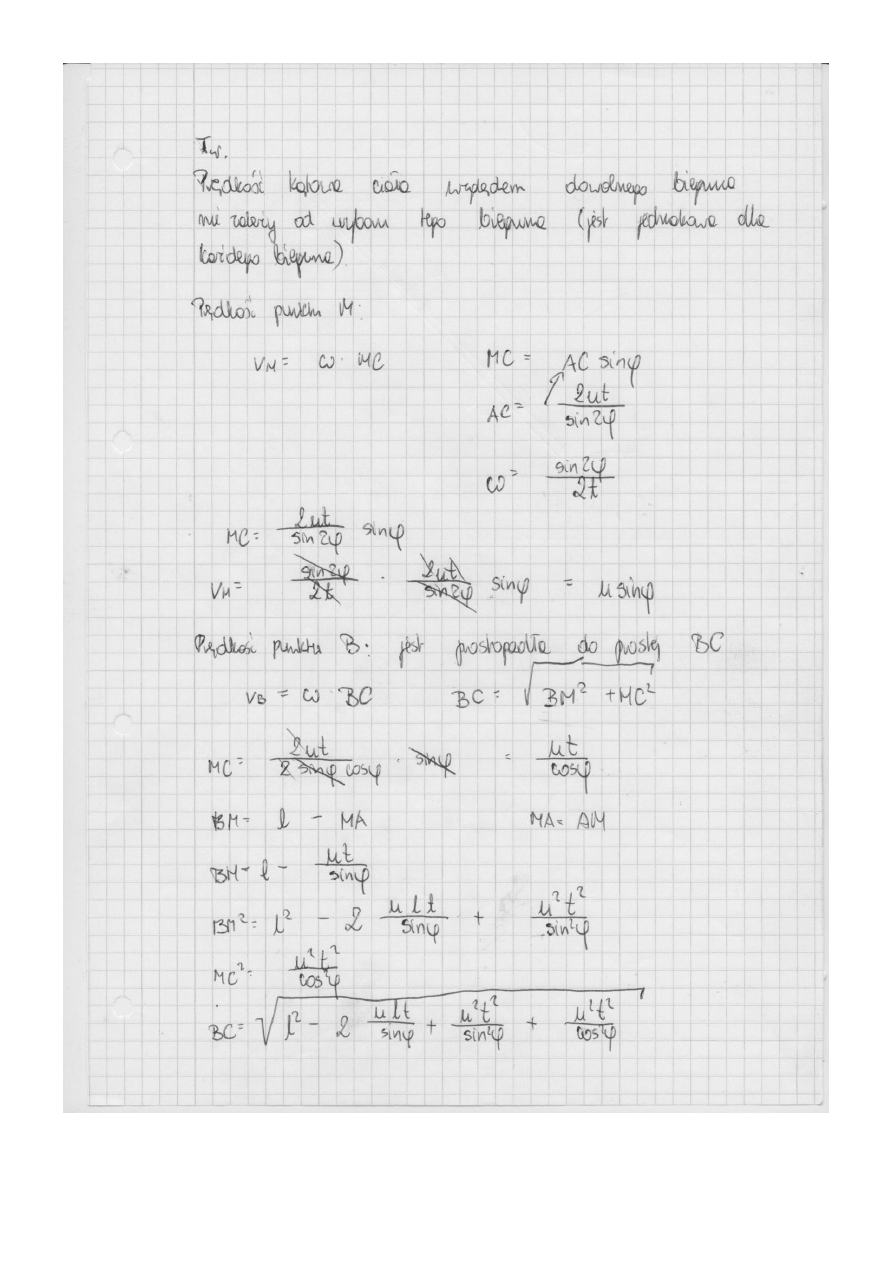 Tw.
Prędkość kątowa ciała względem dowolnego bieguna
nie zależy od wyboru tego bieguna (jest jednakowa dla
każdego bieguna).
Prędkość punktu M:
V_M = ω · MC    MC = AC sinφ
AC = 2ut / sin2φ
ω = sin2φ / 2t
MC = 2ut / sin2φ sinφ
V_M = sin2φ / 2t · 2ut / sin2φ sinφ = u sinφ
Prędkość punktu B: jest prostopadła do prostej BC
V_B = ω · BC    BC = √(BM² + MC²)
MC = 2ut / 2 sinφ cosφ · sinφ = ut / cosφ
BM = l - MA    MA = AM
BM = l - ut / sinφ
BM² = l² - 2 ult / sinφ + u²t² / sin²φ
MC² = u²t² / cos²φ
BC = √(l² - 2 ult / sinφ + u²t² / sin²φ + u²t² / cos²φ)